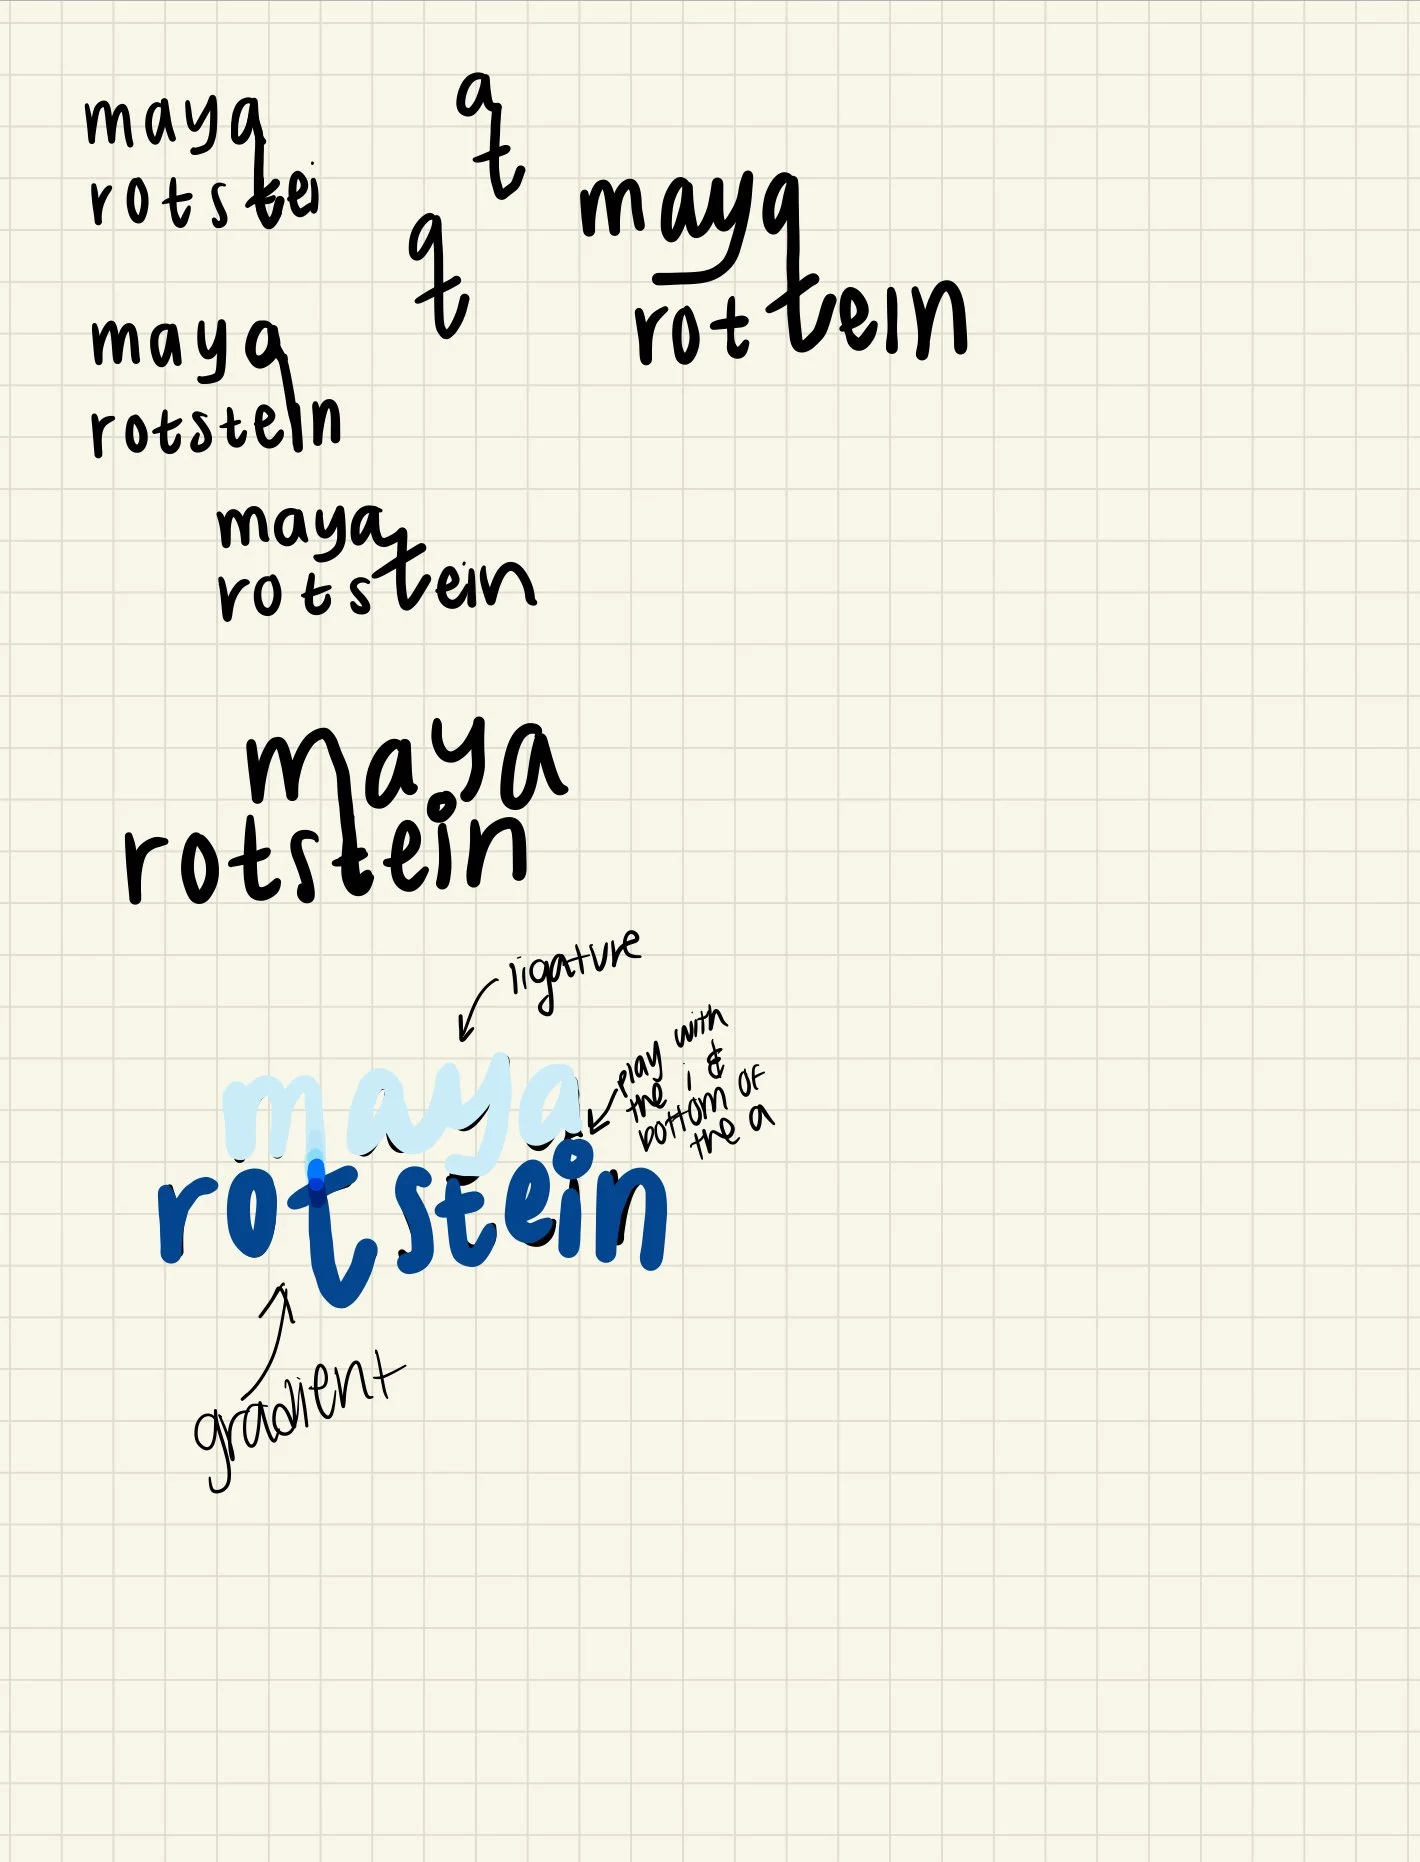 maya
rotstei
a
t
a
t
maya
rottein
maya
rotstein
maya
rotstein
maya
rotstein
ligature
play with
the i &
bottom of
the a
maya
rotstein
gradient